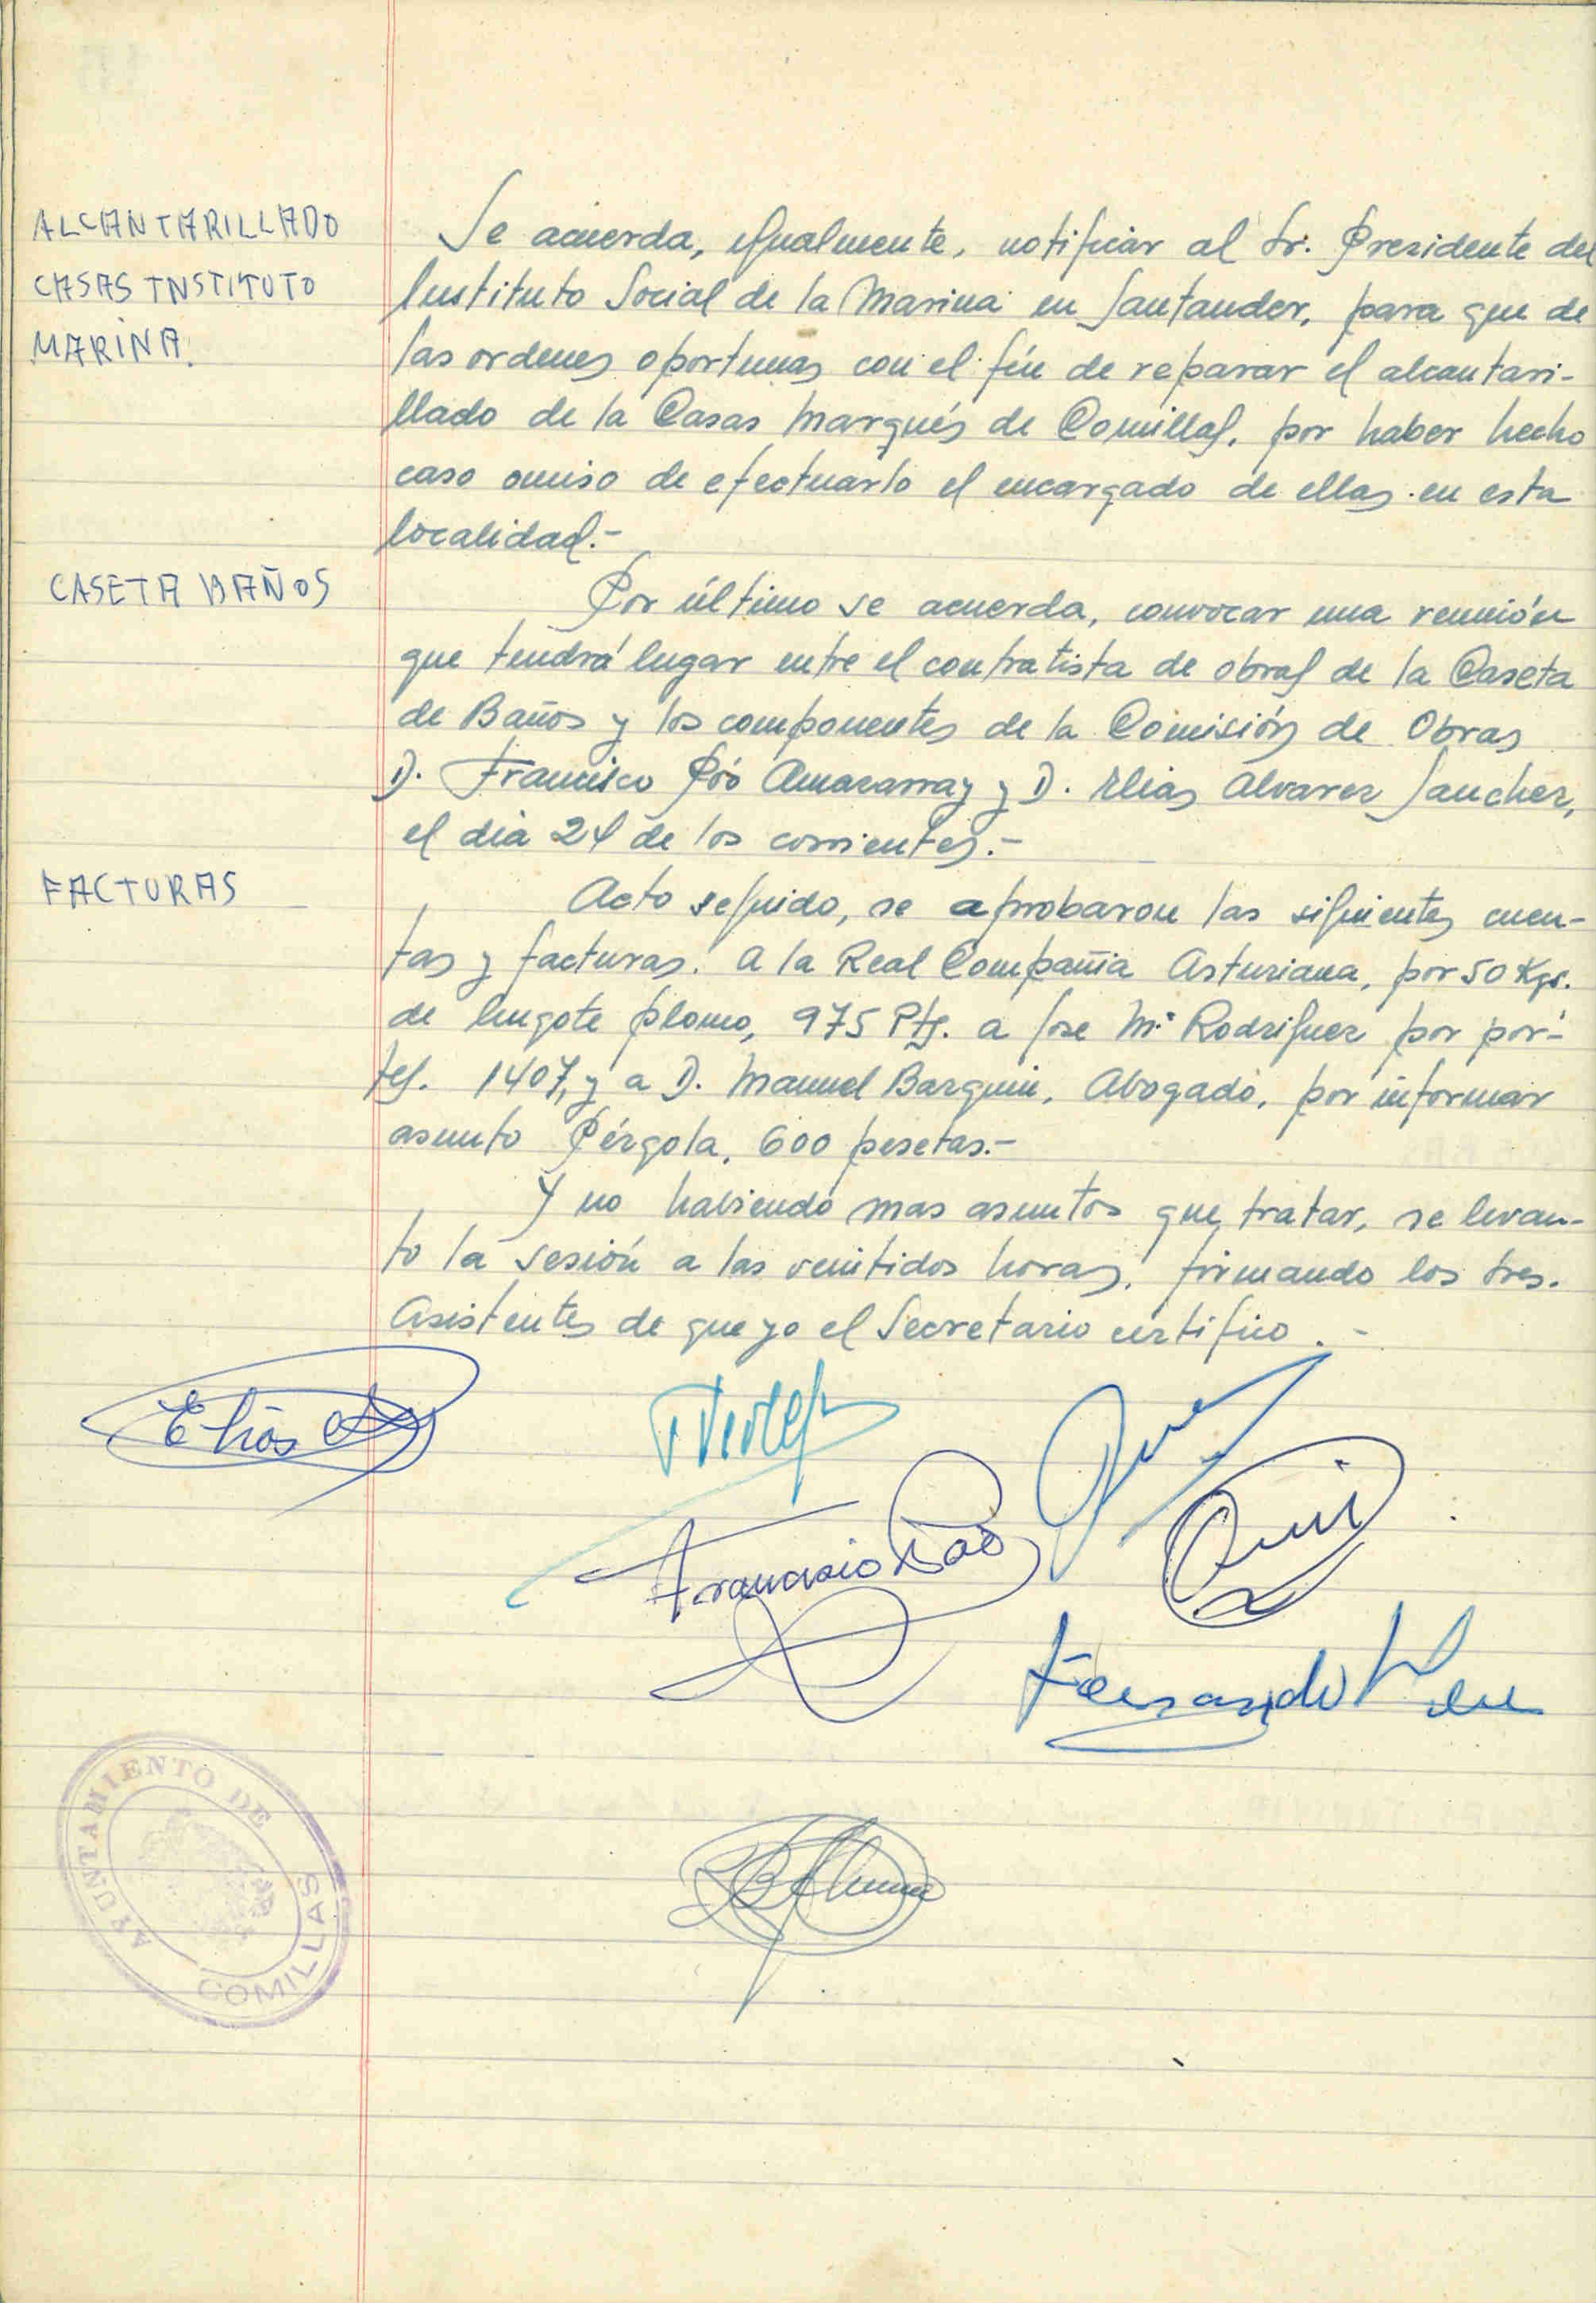 ALCANTARILLADO
CASAS INSTITUTO
MARINA.
Se acuerda, igualmente, notificar al Sr. Presidente del
Instituto Social de la Marina en Santander, para que de
las ordenes oportunas con el fin de reparar el alcantari-
llado de la Casas Marqués de Comillas, por haber hecho
caso omiso de efectuarlo el encargado de ellas en esta
localidad.-
CASETA BAÑOS
Por último se acuerda, convocar una reunión
que tendrá lugar entre el contratista de obras de la Caseta
de Baños y los componentes de la Comisión de Obras
D. Francisco Póo Amazarray y D. Elias Alvarez Sanchez,
el dia 24 de los corrientes.-
FACTURAS
Acto seguido, se aprobaron las siguientes cuen-
tas y facturas. A la Real Compañia Asturiana, por 50 Kgs.
de lingote plomo, 975 Pts. a Jose Mª Rodriguez por por-
tes. 1407, y a D. Manuel Barquin, Abogado, por informar
asunto Pérgola, 600 pesetas.-
Y no habiendo mas asuntos que tratar, se levan-
to la sesión a las venitidos horas, firmando los Sres.
Asistentes de que yo el Secretario certifico.-
Elías
Francisco Póo
Fernando
AYUNTAMIENTO DE
COMILLAS